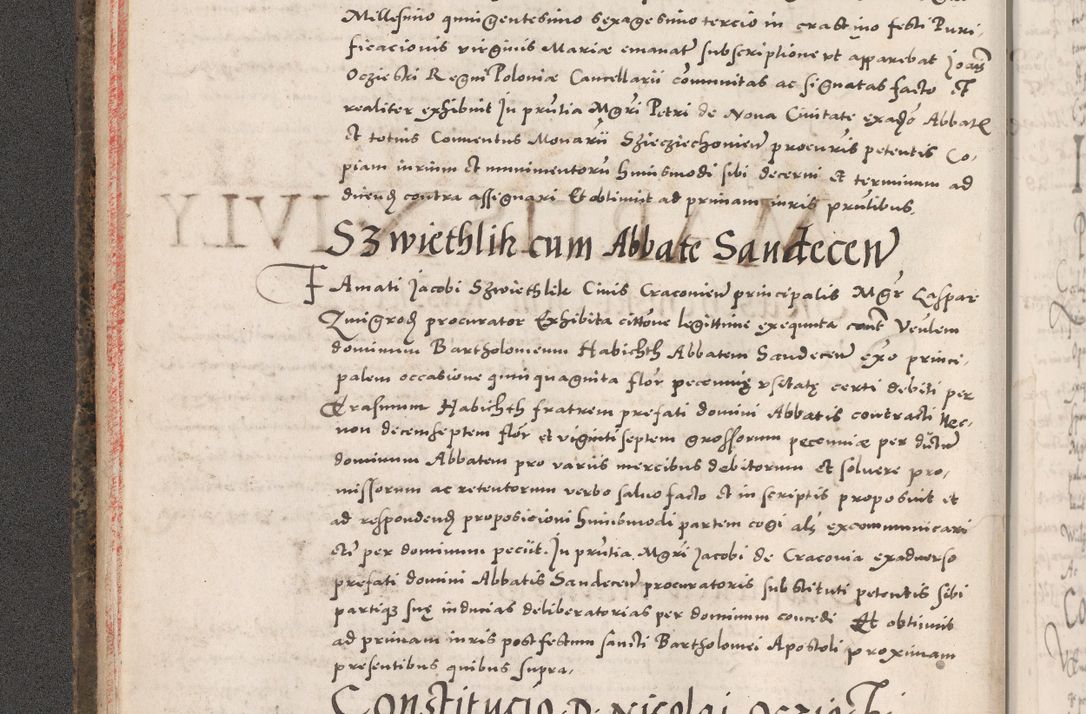 Millesimo quingentesimo sexagesimo tercio in crastino festi Puri-
ficacionis virginis Mariæ emanat subscriptione vt apparebat Joañ
Oczieski Regni Poloniæ Cancellarii comunitas ac signatas facto et
realiter exhibuit In prntia Mgri Petri de Noua Ciuitate exadō Abbatis
et totius Conuentus Monarii Sziecziechouien procuris petentis Co-
piam iurium et munimentorū huiusmodi sibi decerni et terminum ad
dicend contra assignari Et obtinuit ad primam iuris prntibus,
Szwiethlik cum Abbate Sandecen
FAmati Jacobi Szwiethlik Ciuis Cracouien principalis Mgr Caspar
Zmigrod procurator Exhibita cittōne legittime exequuta contr Venlem
dominum Bartholomeum Habichth Abbatem Sandecen exo princi-
palem occasione quinquaginta flor pecunię vsitatę certi debiti per
Erasmum Habichth fratrem prefati domini Abbatis contracti Nec-
non decemseptem flor et viginti septem grossorum pecuniæ per dictum
dominum Abbatem pro variis mercibus debitorum et soluere pro-
missorum ac retentorum verbo saluo facto et in scriptis proposuit et
ad respondend proposicioni huiusmodi partem cogi als excommunicari
etc per dominum peciit. In prntia Mgri Jacobi de Cracouia exaduerso
prefati domini Abbatis Sandecen procuratoris substituti petentis sibi
partiqz suę inducias deliberatorias per dominum concedi Et obtinuit
ad primam iuris post festum sancti Bartholomei Apostoli proximam
presentibus quibus supra.
Constitucio D Nicolai Oczieski